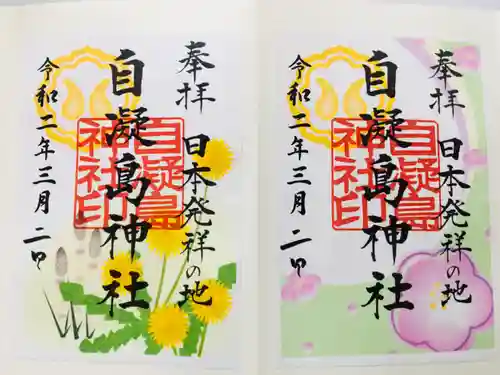 奉拝 日本発祥の地
自凝島神社
自凝島神社印
令和二年三月二日
奉拝 日本発祥の地
自凝島神社
自凝島神社印
令和二年三月二日